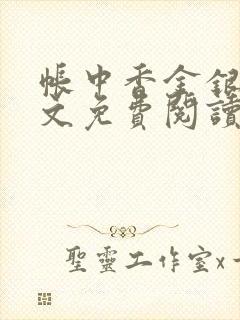 帳中香金銀
文免費閱讀
聖靈工作室x